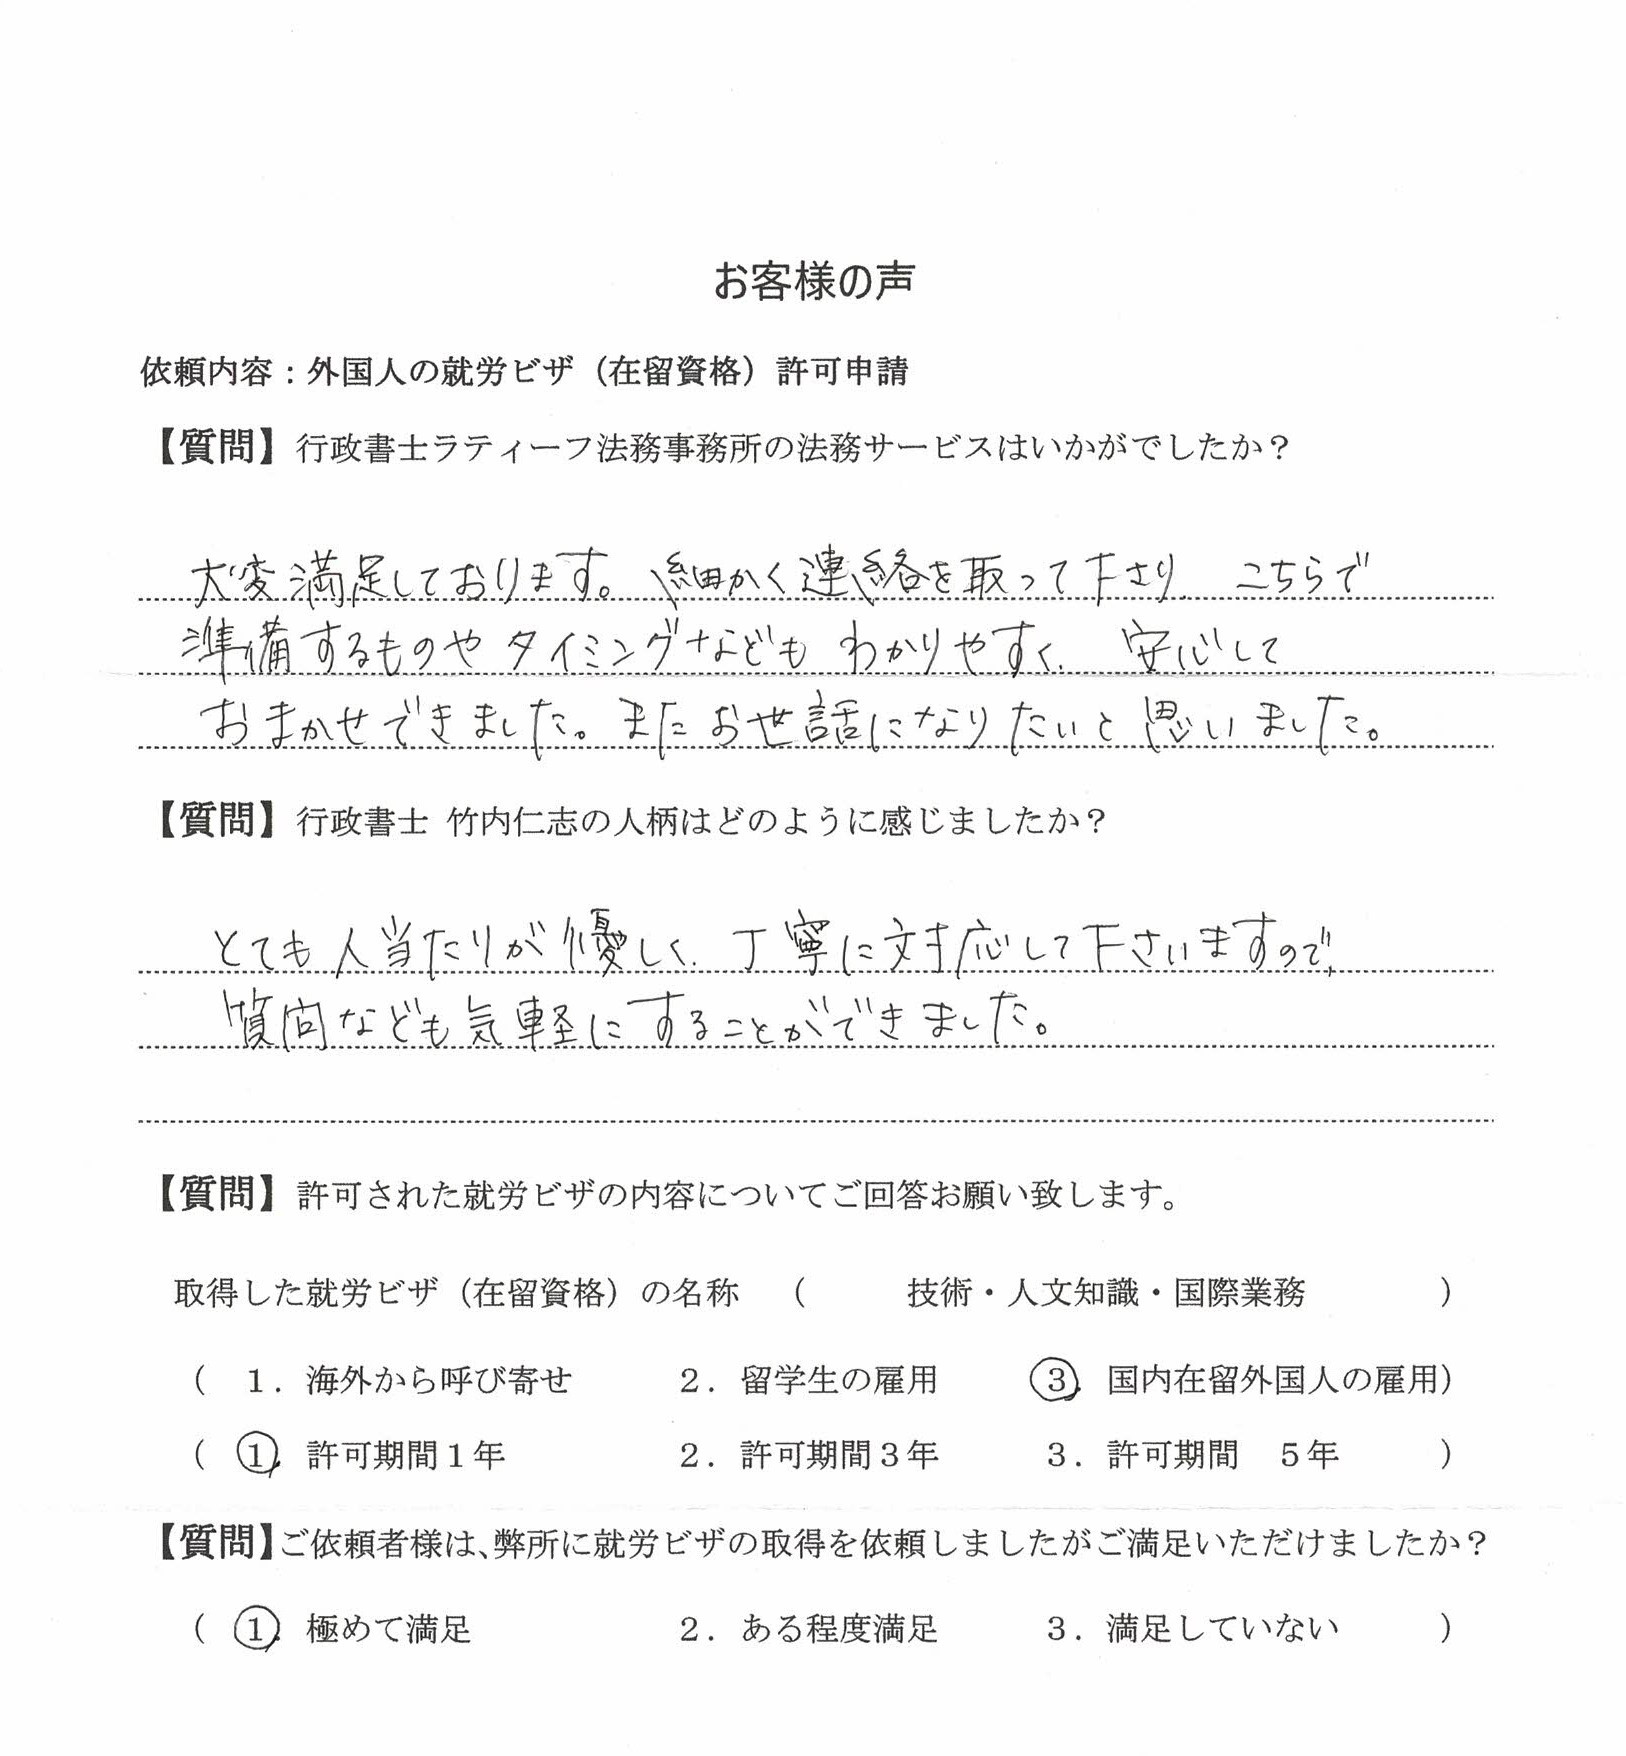 お客様の声
依頼内容：外国人の就労ビザ（在留資格）許可申請
【質問】行政書士ラティーフ法務事務所の法務サービスはいかがでしたか？
大変満足しております。細かく連絡を取って下さり、こちらで
準備するものやタイミングなどもわかりやすく、安心して
おまかせできました。またお世話になりたいと思いました。
【質問】行政書士 竹内仁志の人柄はどのように感じましたか？
とても人当たりが優しく、丁寧に対応して下さいますので、
質問なども気軽にすることができました。
【質問】許可された就労ビザの内容についてご回答お願い致します。
取得した就労ビザ（在留資格）の名称 （ 技術・人文知識・国際業務 ）
（ 1．海外から呼び寄せ 2．留学生の雇用 3．国内在留外国人の雇用）
（ 1．許可期間1年 2．許可期間3年 3．許可期間 5年 ）
【質問】ご依頼者様は、弊所に就労ビザの取得を依頼しましたがご満足いただけましたか？
（ 1．極めて満足 2．ある程度満足 3．満足していない ）